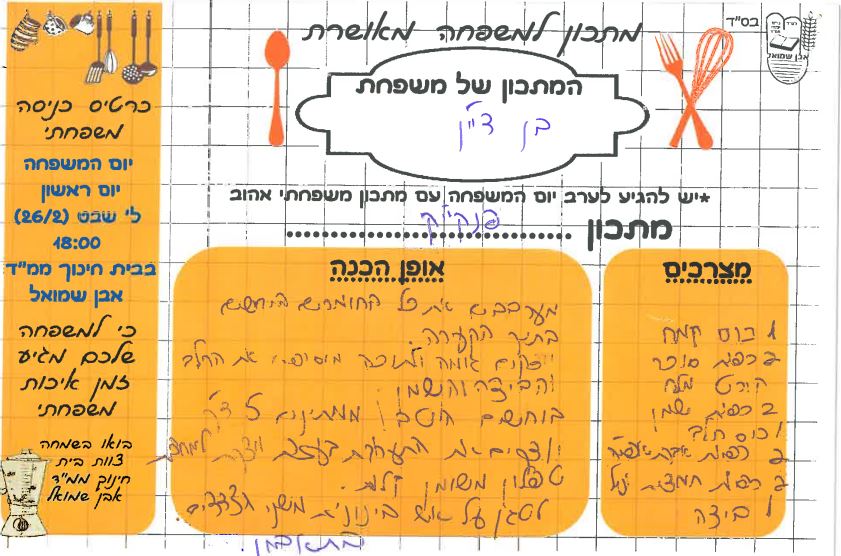 בס"ד
אבן שמואל
מתכון למשפחה מאושרת
המתכון של משפחת
בן דיין
*יש להגיע לערב יום המשפחה עם מתכון משפחתי אהוב
מתכון
פנקייק
מצרכים
1 כוס קמח
2 כפות סוכר
קורט מלח
2 כפות שמן
1 כוס חלב
2 כפות אבקת אפיה
2 כפות חמצית
1 ביצה
אופן הכנה
מערבבים את כל החומרים היבשים
בתוך הקערה.
גומה ולתוכה מוסיפים את החלב
והביצה והשמן.
בוחשים היטב! ממתינים 5 דק'
יוצקים את התערובת בעזרת מצקת למחבת
טפלון משומן קלות.
לטגן על אש בינונית משני הצדדים.
בתאבון.
כרטיס כניסה
משפחתי
יום המשפחה
יום ראשון
ל' שבט (26/2)
18:00
בבית חינוך ממ"ד
אבן שמואל
כי למשפחה
שלכם מגיע
זמן איכות
משפחתי
בואו בשמחה
צוות בית
חינוך ממ"ד
אבן שמואל